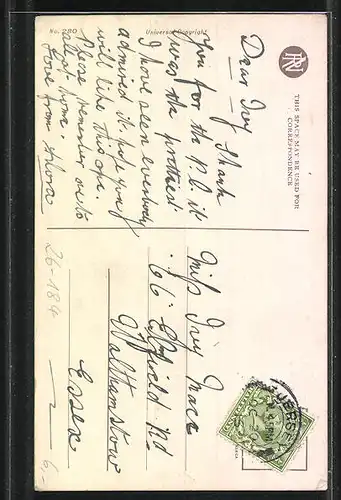 No. 2RO
Universal Copyright
THIS SPACE MAY BE USED FOR
CORRESPONDENCE
Dear Ivy Thank
you for the P.C. it
was the prettiest
I have seen everybody
admired it. hope you
will like this one.
Please remember me to
all at home.
Love from
Miss Ivy
66 Rd
Walthamstow
Essex
JERSEY
26-184
6.-